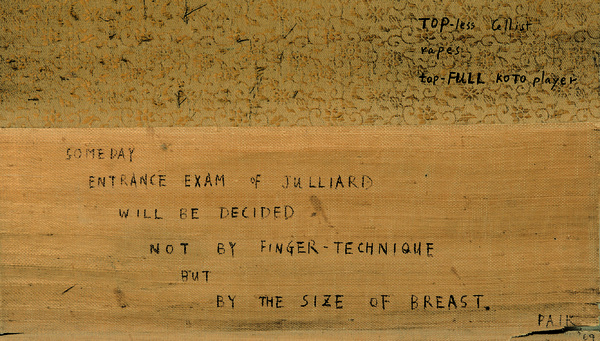 TOP-less Cellist
rapes
top-FULL KOTO player
SOMEDAY
ENTRANCE EXAM of JULLIARD
WILL BE DECIDED
NOT BY FINGER-TECHNIQUE
BUT
BY THE SIZE OF BREAST.
PAIK
'69